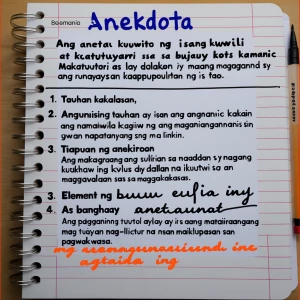 Boomania
Anekdota
Ang anetal kuuwito ng isang kuwili
at kcatutuyarri ssa sa bujauy kots kamanic
Makatuutori as lay dalakan iy maang magagannd sy
ang runayaysan kaappupoulrtan ng is tao.
1. Tauhan kakalasan,
2. Angunising tauhan ay isan ang angnanic kakain
ang namaiwila kagiiw ng ang maganiangannanis sin
gwan napatanyang sng ma linkin.
3. Tiapuan ng anekiroon
Ang makagraang ang sulirian sa naaddan sy nagang
kuukhaw ing kvlus diy dallan na ikuutwi sa an
maggavalaan sas sa maggakakasas.
3. Element ng buuu eufia iny
4. As banghaay anetaunat
Ang pagganinng tuvtol aylay ay iis aang mataiiraangang
mag tuayan nag-llictur na nsan maiklupasan sa
pagwakwasa.
agtaida ing